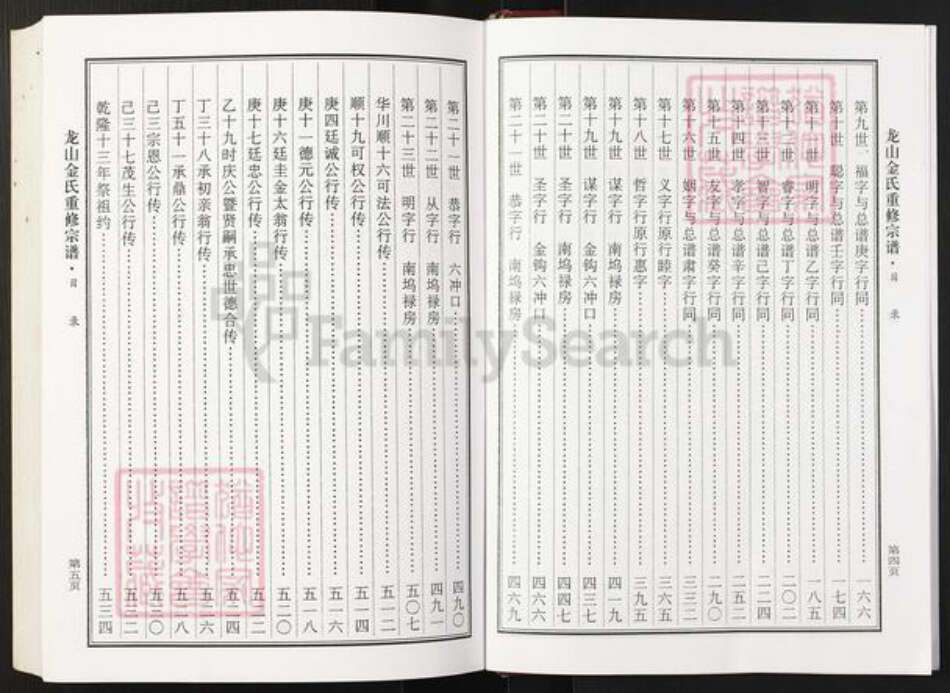 龙山金氏重修宗谱·目 录
第四页
第九世 福字与总谱庚字行同 一六六
第十世 聪字与总谱壬字行同 一七四
第十一世 明字与总谱乙字行同 一八五
第十二世 睿字与总谱丁字行同 二〇二
第十三世 智字与总谱己字行同 二二四
第十四世 孝字与总谱辛字行同 二五二
第十五世 友字与总谱癸字行同 二九〇
第十六世 姻字与总谱肃字行同 三三二
第十七世 义字行原行睦字 三六五
第十八世 哲字行原行惠字 三九五
第十九世 谋字行 南坞禄房 四一九
第十九世 谋字行 金钩六冲口 四三七
第二十世 圣字行 南坞禄房 四四七
第二十世 圣字行 金钩六冲口 四六六
第二十一世 恭字行 南坞禄房 四六九
第二十一世 恭字行 六冲口 四九〇
第二十二世 从字行 南坞禄房 四九一
第二十三世 明字行 南坞禄房 五〇七
华川顺十六可法公行传 五一二
顺十九可权公行传 五一四
庚四廷诚公行传 五一六
庚十一德元公行传 五一八
庚十六廷圭金太翁行传 五二〇
庚十七廷忠公行传 五二二
乙十九时庆公暨贤嗣承思世德合传 五二四
丁三十八承初亲翁行传 五二六
丁五十一承鼎公行传 五二八
己三宗恩公行传 五三〇
己三十七茂生公行传 五三二
乾隆十三年祭祖约 五三四
龙山金氏重修宗谱·目 录
第五页
FamilySearch